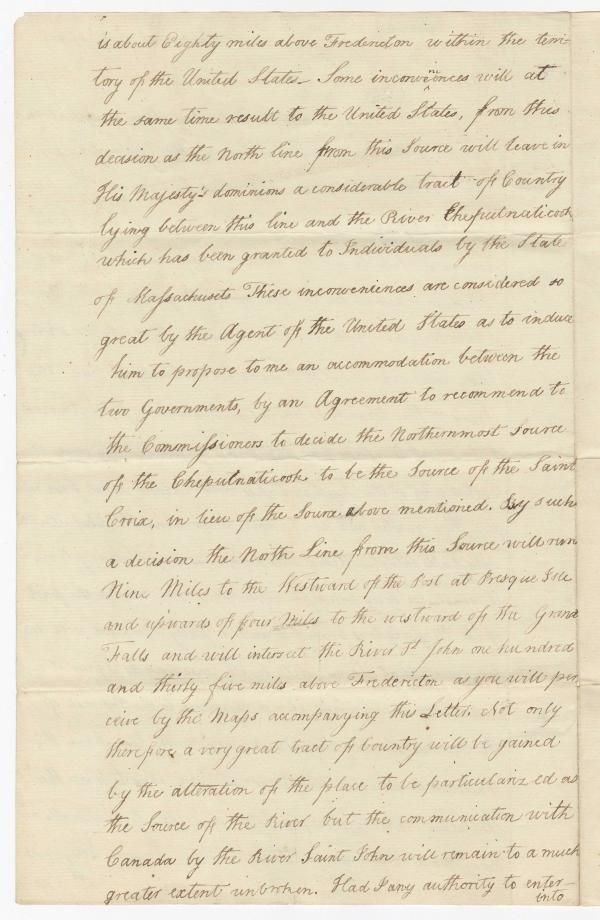 is about Eighty miles above Fredericton within the terri-
tory of the United States_ Some inconveniences will at
the same time result to the United States, from this
decision as the North line from this Source will leave in
His Majesty's dominions a considerable tract of Country
lying between this line and the River Cheputnaticook
which has been granted to Individuals by the State
of Massachusets These inconveniences are considered so
great by the Agent of the United States as to induce
him to propose to me an accommodation between the
two Governments, by an Agreement to recommend to
the Commissioners to decide the Northernmost source
of the Cheputnaticook to be the Source of the Saint
Croix, in lieu of the Source above mentioned. By such
a decision the North Line from this Source will run
Nine Miles to the Westward of the Post at Presque Isle
and upwards of four Miles to the westward of the Grand
Falls and will intersect the River St John one hundred
and thirty five miles above Fredericton as you will per
ceive by the Maps accompanying this Letter. Not only
therefore a very great tract of Country will be gained
by the alteration of the place to be particularized as
the Source of the River but the communication with
Canada by the River Saint John will remain to a much
greater extent unbroken. Had I any authority to enter
into